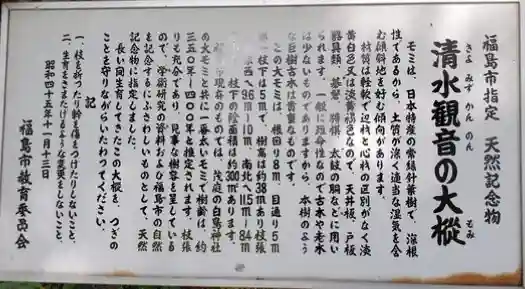 福島市指定 天然記念物
清水観音の大樅
きよ みず かん のん もみ
モミは、日本特産の常緑針葉樹で、深根
性であるから、土質が深く適当な湿気を含
む傾斜地を好む傾向があります。
材質は軽軟で辺材と心材の区別がなく淡
黄白色又は淡黄褐色なので、天井板、戸板
器具類、碁盤、将棋、太鼓の胴などに用い
られます。一般に短命性なので古木や老木
は少ないものでありますから、本樹のよう
な巨樹古木は貴重なものです。
この大モミは、根回り8m、目通り5m
枝下は5mで、樹高は約38mあり枝張
東西へ9.6m-10m、南北へ11.5-8.4m
枝下の陰面積は約300㎡あります。
福島市現存のものでは、茂庭の白鳥神社
の大モミと共に一番太いモミで樹齢は、約
三五〇年-四〇〇年と推定されます。枝張
りも充分であり、見事な樹容を呈している
ので、学術研究の資料および福島市の自然
を記念するにふさわしいものとして、天然
記念物に指定しました。
長い間生育してきたこの大樅を、つぎの
ことを守りながらいたわってください。
記
一、枝を折ったり幹を傷をつけたりしないこと、
二、生育をさまたげるような変更をしないこと、
昭和四十五年十一月十三日
福島市教育委員会